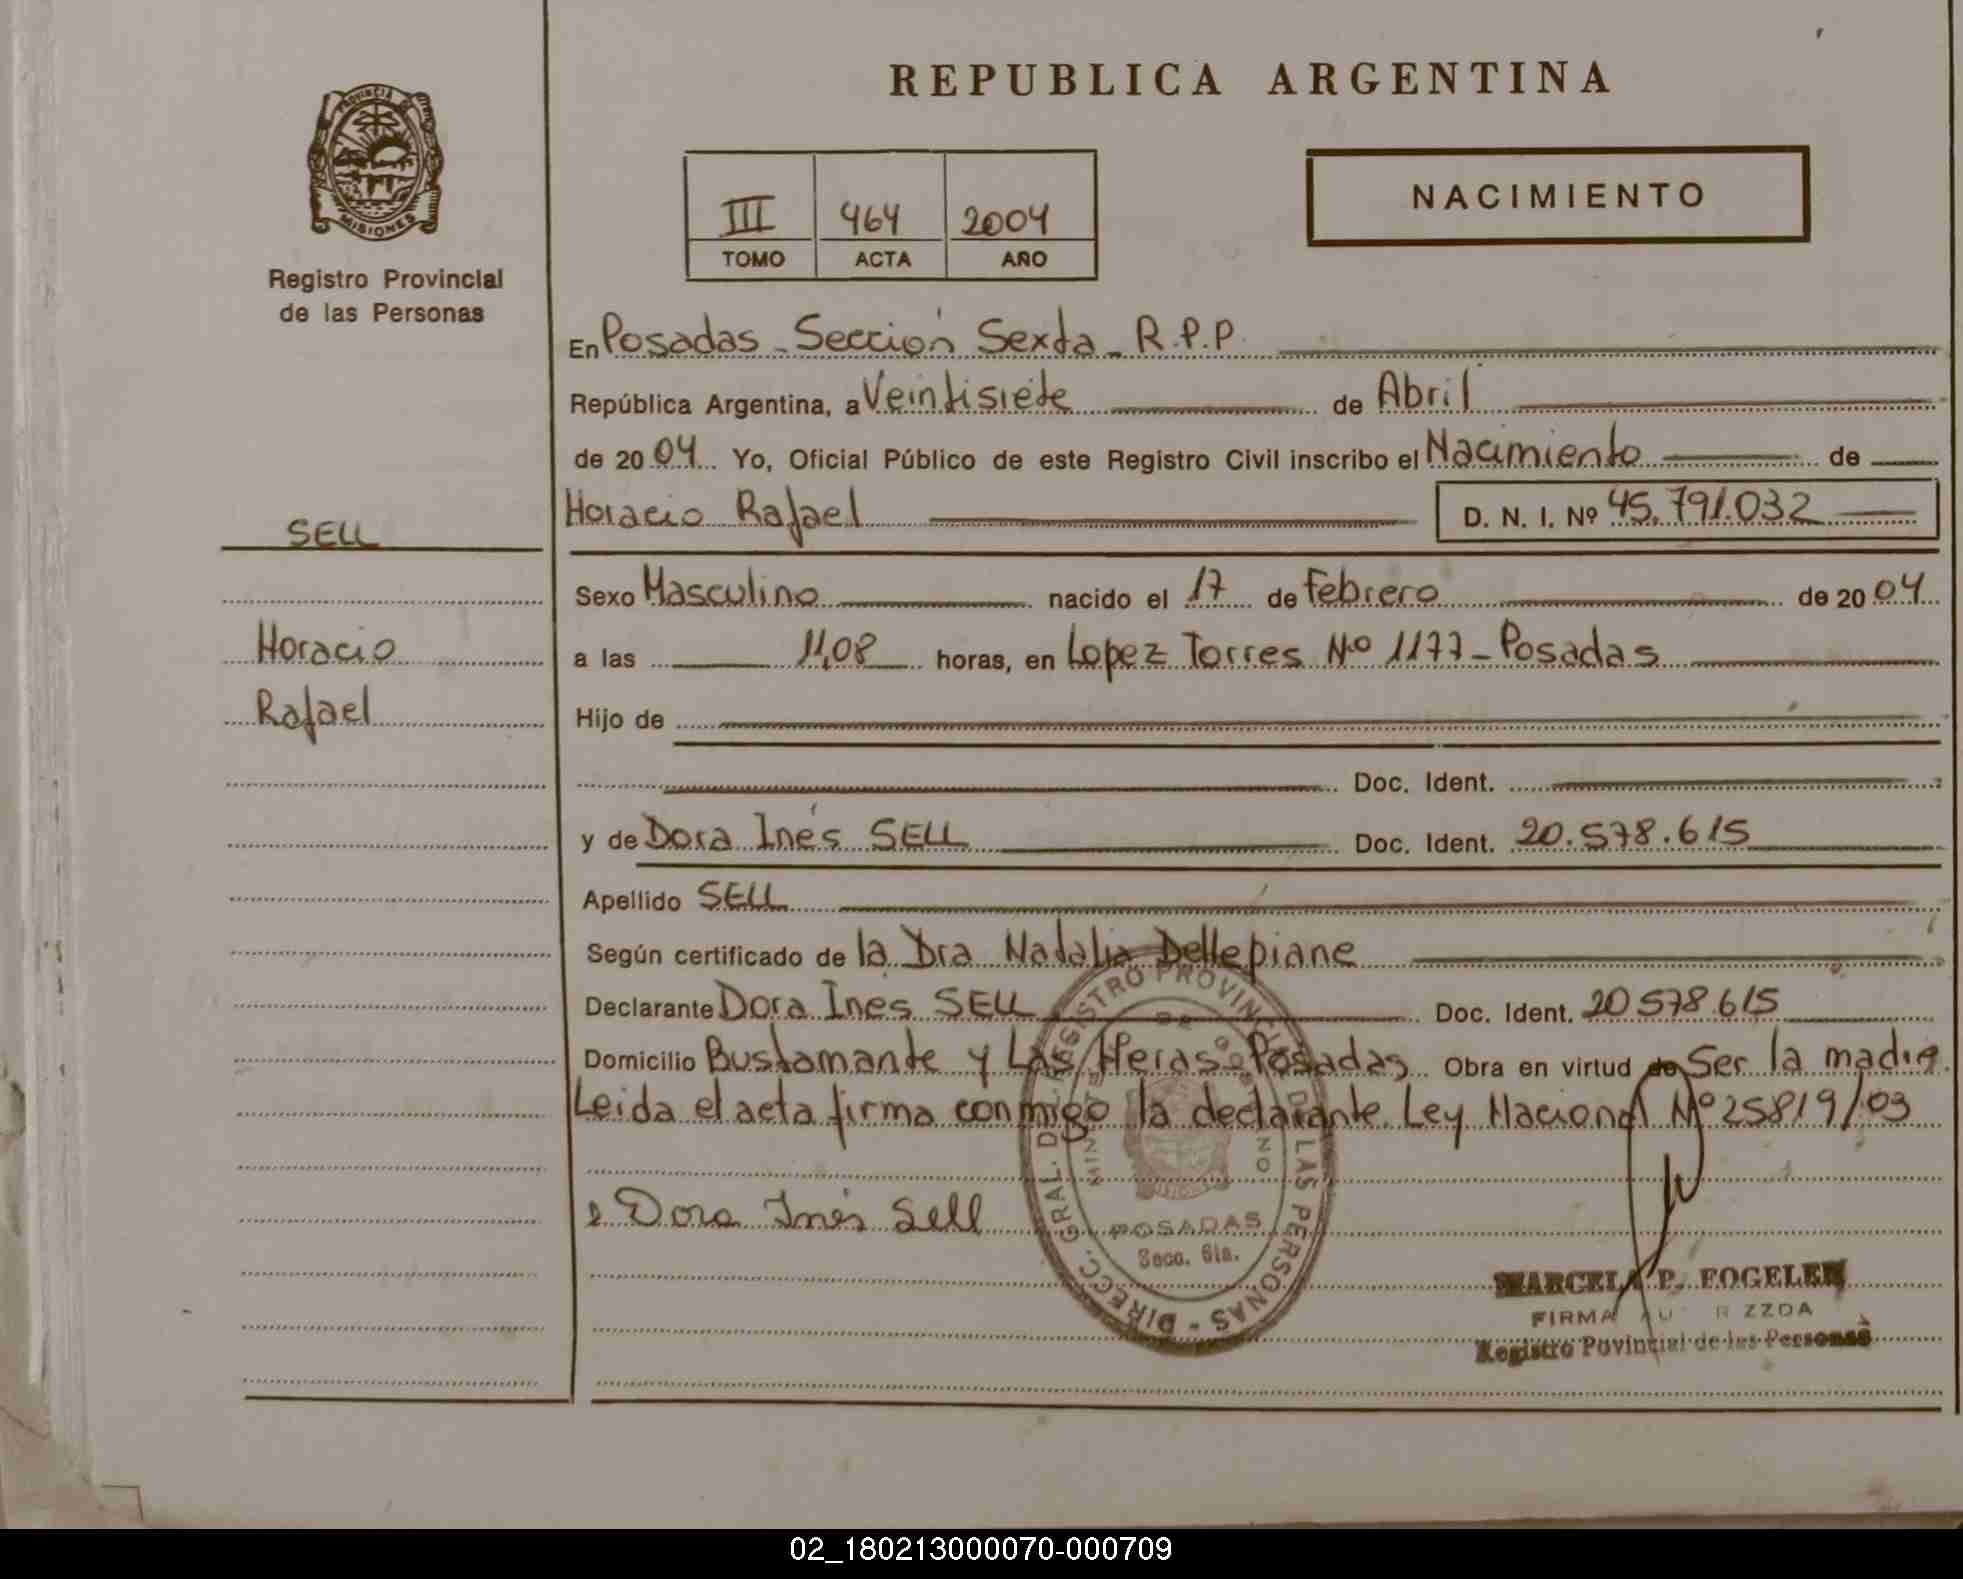 REPUBLICA ARGENTINA
PROVINCIA DE
MISIONES
Registro Provincial
de las Personas
NACIMIENTO
III 464 2004
TOMO ACTA AÑO
En Posadas - Sección Sexta - R.P.P.
República Argentina, a Veintisiete de Abril
de 2004. Yo, Oficial Público de este Registro Civil inscribo el Nacimiento de
Horacio Rafael D. N. I. Nº 45.791.032
SELL
Sexo Masculino nacido el 17 de Febrero de 2004
Horacio
a las 11,08 horas, en Lopez Torres Nº 1177 - Posadas
Rafael
Hijo de
Doc. Ident.
y de Dora Inés SELL Doc. Ident. 20.578.615
Apellido SELL
Según certificado de la Dra Natalia Dellepiane
Declarante Dora Inés SELL Doc. Ident. 20578.615
Domicilio Bustamante y Las Heras - Posadas Obra en virtud de Ser la madre.
Leida el acta firma conmigo la declarante. Ley Nacional Nº 25819/03
Dora Inés Sell
DIRECC. GRAL. DEL REGISTRO PROVINCIAL DE LAS PERSONAS
POSADAS
Secc. 6ta.
MARCELA P. FOGELER
FIRMA AU R ZZDA
Registro Povincial de las Personas
02_180213000070-000709